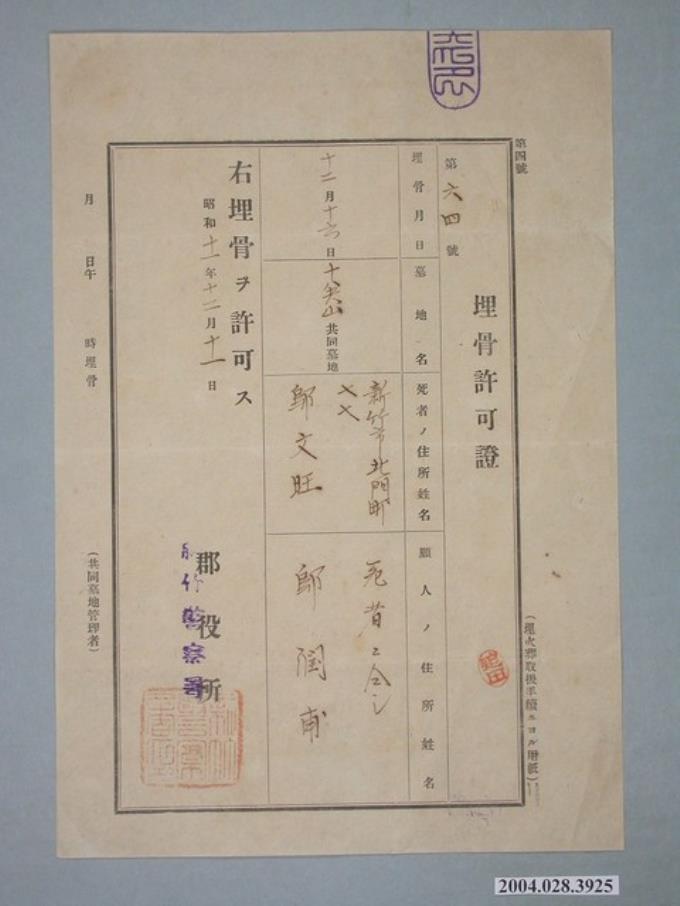 第四號
(埋火葬取扱手續ニヨル用紙)
埋骨許可證
第六四號
埋骨月日
墓地名
死者ノ住所姓名
願人ノ住所姓名
十二月十六日
十尖山共同墓地
新竹市北門町
七七
鄭文旺
死者ニ仝シ
鄭潤甫
右埋骨ヲ許可ス
昭和十一年十二月十一日
郡役所
新竹警察署
月 日午 時埋骨
(共同墓地管理者)
2004.028.3925